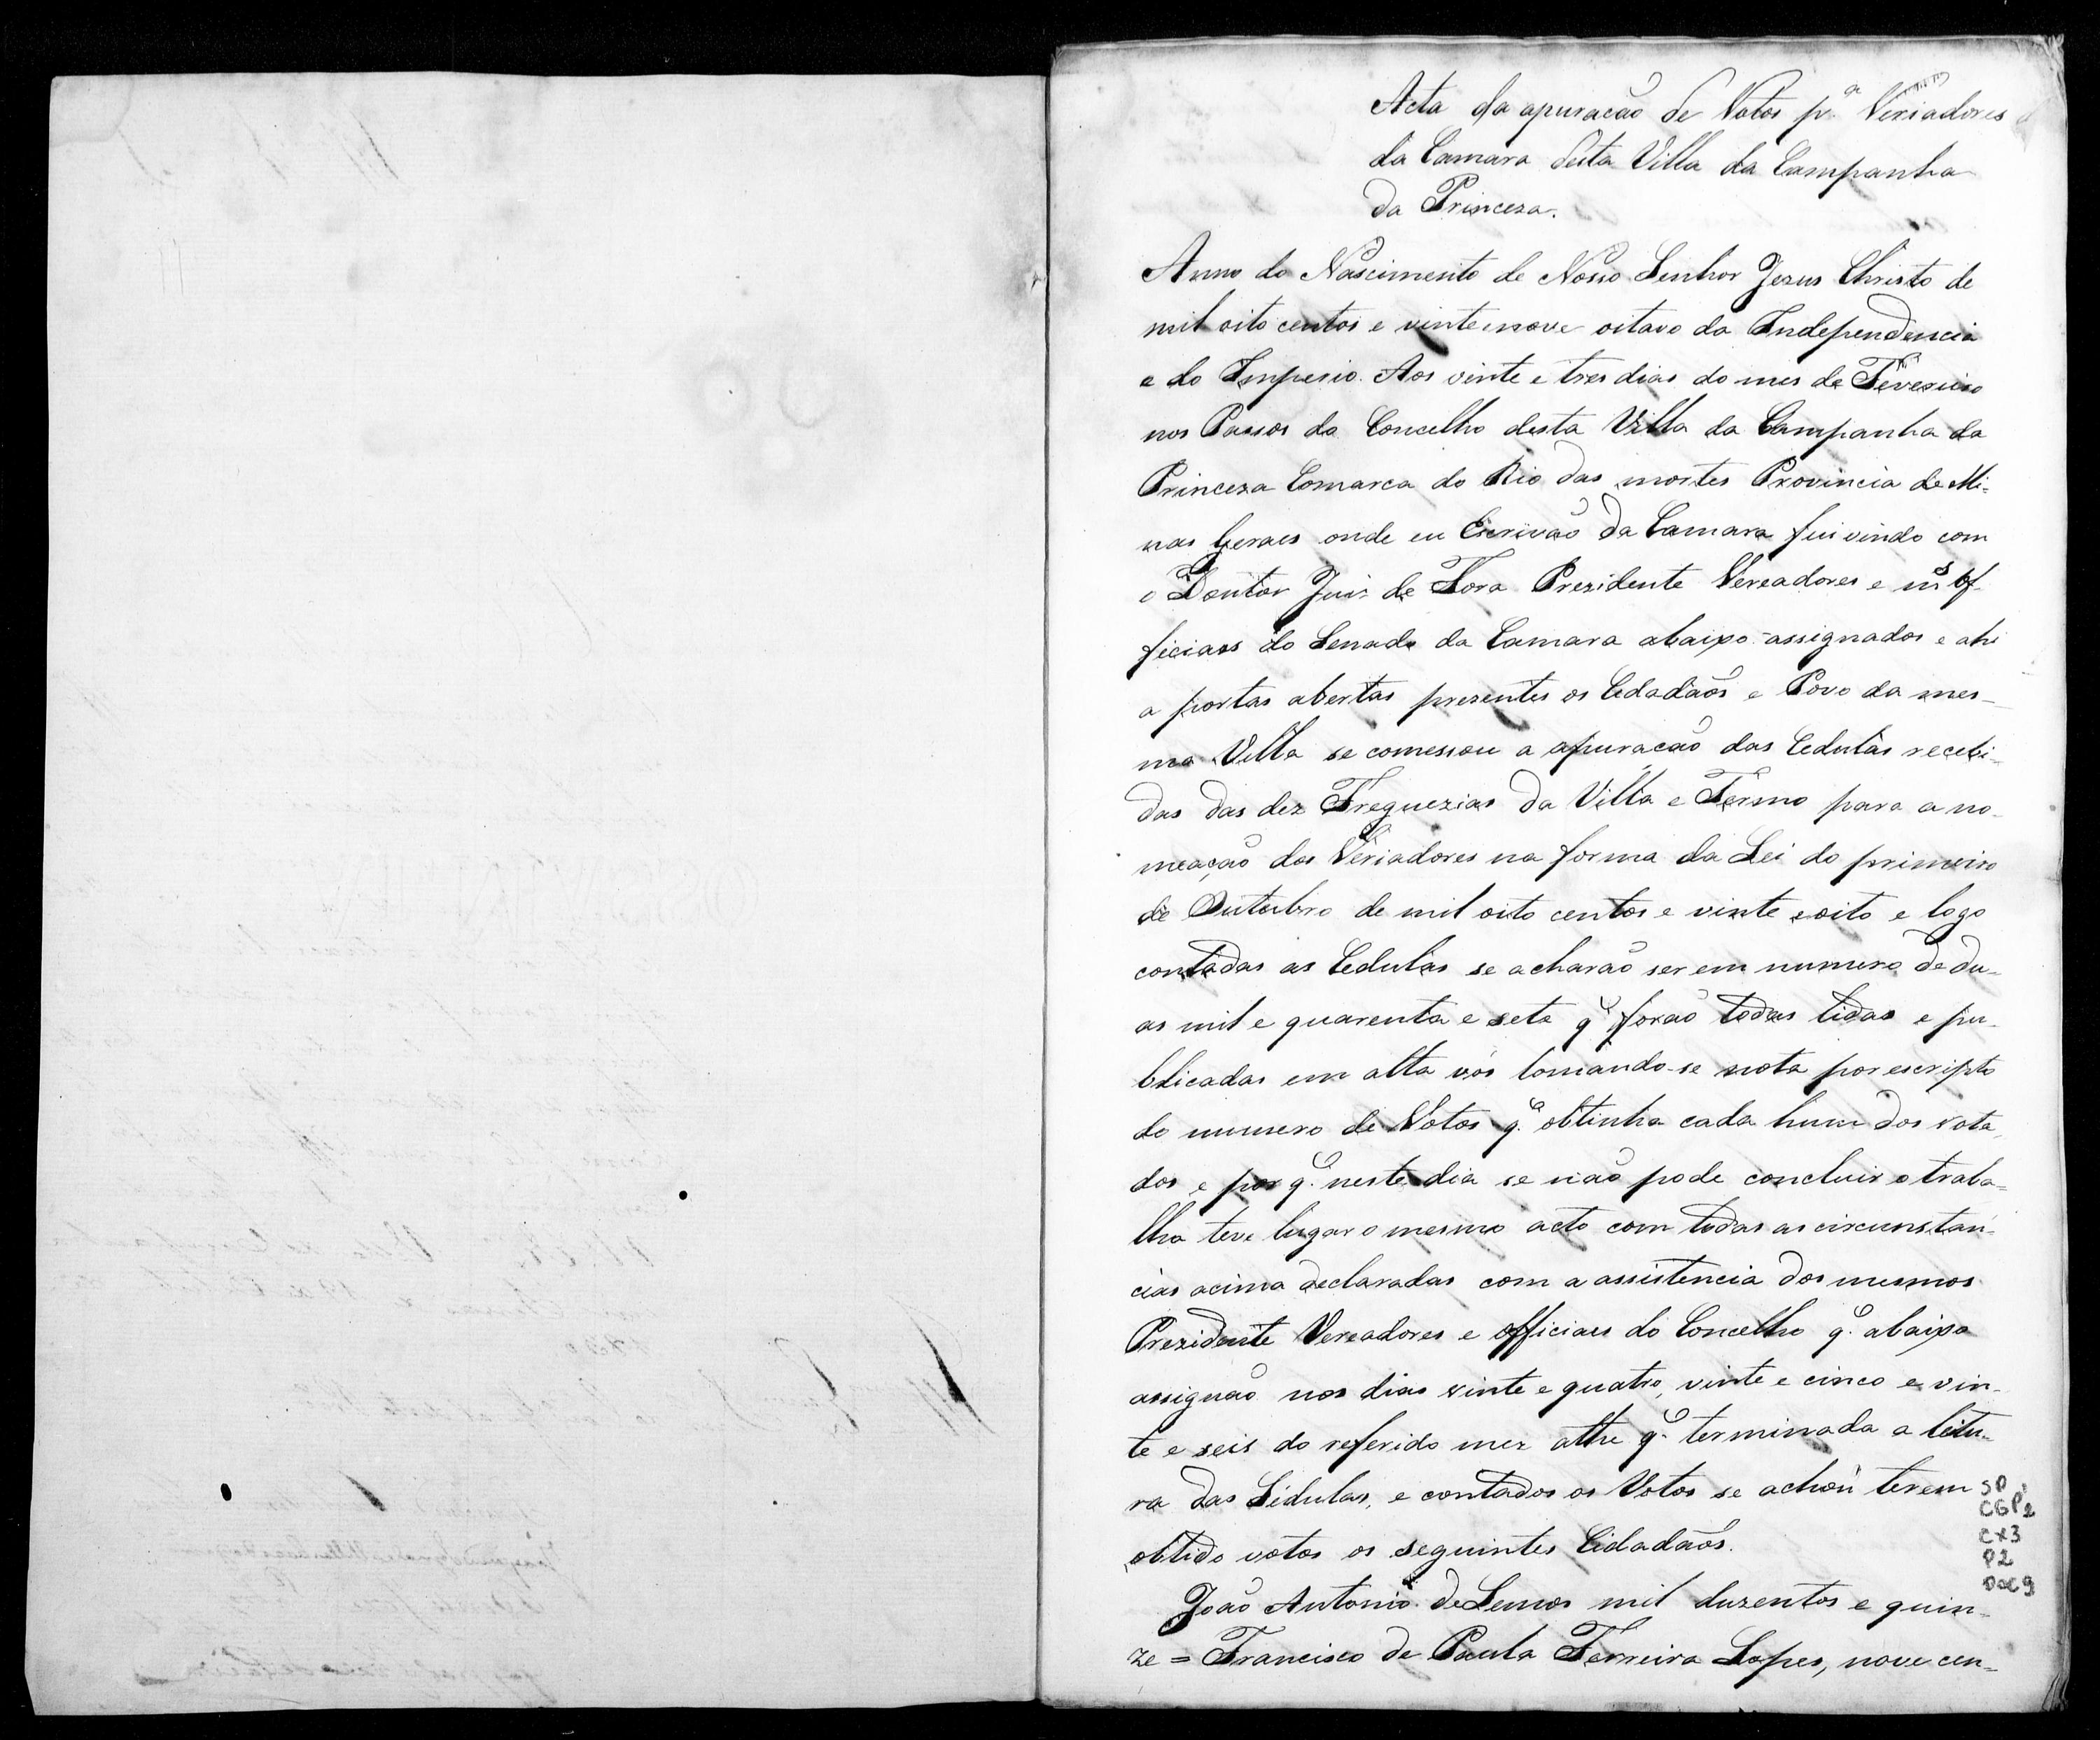 Acta da apuração de Votos p.ª Veriadores
da Camara desta Villa da Campanha
da Princeza.
Anno do Nascimento de Nosso Senhor Jezus Christo de
mil oito centos e vinte nove oitavo da Independencia
e do Imperio. Aos vinte e tres dias do mes de Fevereiro
nos Passos do Concelho desta Villa da Campanha da
Princeza Comarca do Rio das mortes Provincia de Mi=
nas Geraes onde eu Escrivão da Camara fui vindo com
o Doutor Juis de Fora Prezidente Vereadores e m.s Of-
ficiaes do Senado da Camara abaixo assignados e ahi
a portas abertas prezentes os Cidadãos e Povo da mes-
ma Villa se comessou a apuração das Cedulas recebi-
das das dez Freguezias da Villa e Termo para a no-
meação dos Veriadores na forma da Lei do primeiro
de Outubro de mil oito centos e vinte e oito e logo
contadas as Cedulas se acharão ser em numero de du-
as mil e quarenta e sete q' forão todas lidas e pu-
blicadas em alta vós tomando-se nota por escripto
do numero de Votos q.' obtinha cada hum dos vota-
dos, e por q.' neste dia se não pode concluir o traba=
lho teve lugar o mesmo acto com todas as circunstan-
cias acima declaradas com a assistencia dos mesmos
Prezidente Vereadores e officiaes do Concelho q.' abaixo
assignão nos dias vinte e quatro, vinte e cinco e vin-
te e seis do referido mez athe q.' terminada a leitu-
ra das Sedulas, e contados os Votos se achou terem
obtido votos os seguintes Cidadãos.
João Antonio de Lemos mil duzentos e quin-
ze = Francisco de Paula Ferreira Lopes, nove cen-
SP
CGP2
CX3
P2
DOC9